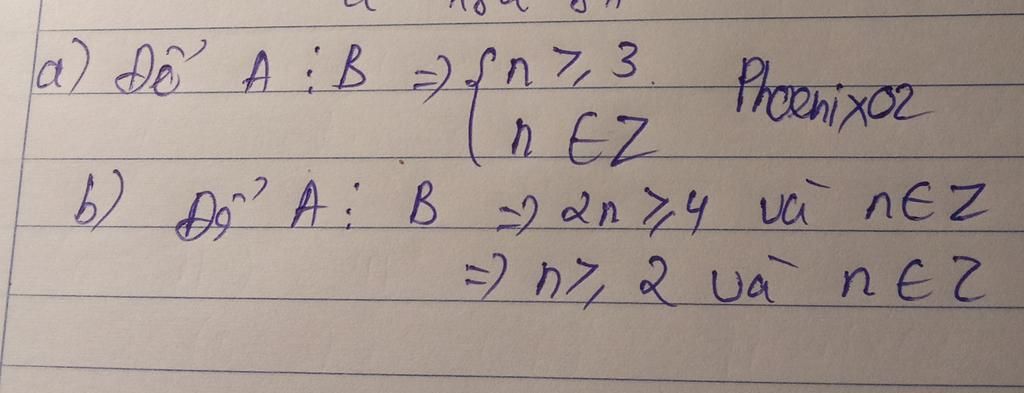 a) Để A ⋮ B => { n ≥ 3. Phoenix02
n ∈ Z
b) Để A ⋮ B => 2n ≥ 4 và n ∈ Z
=> n ≥ 2 và n ∈ Z